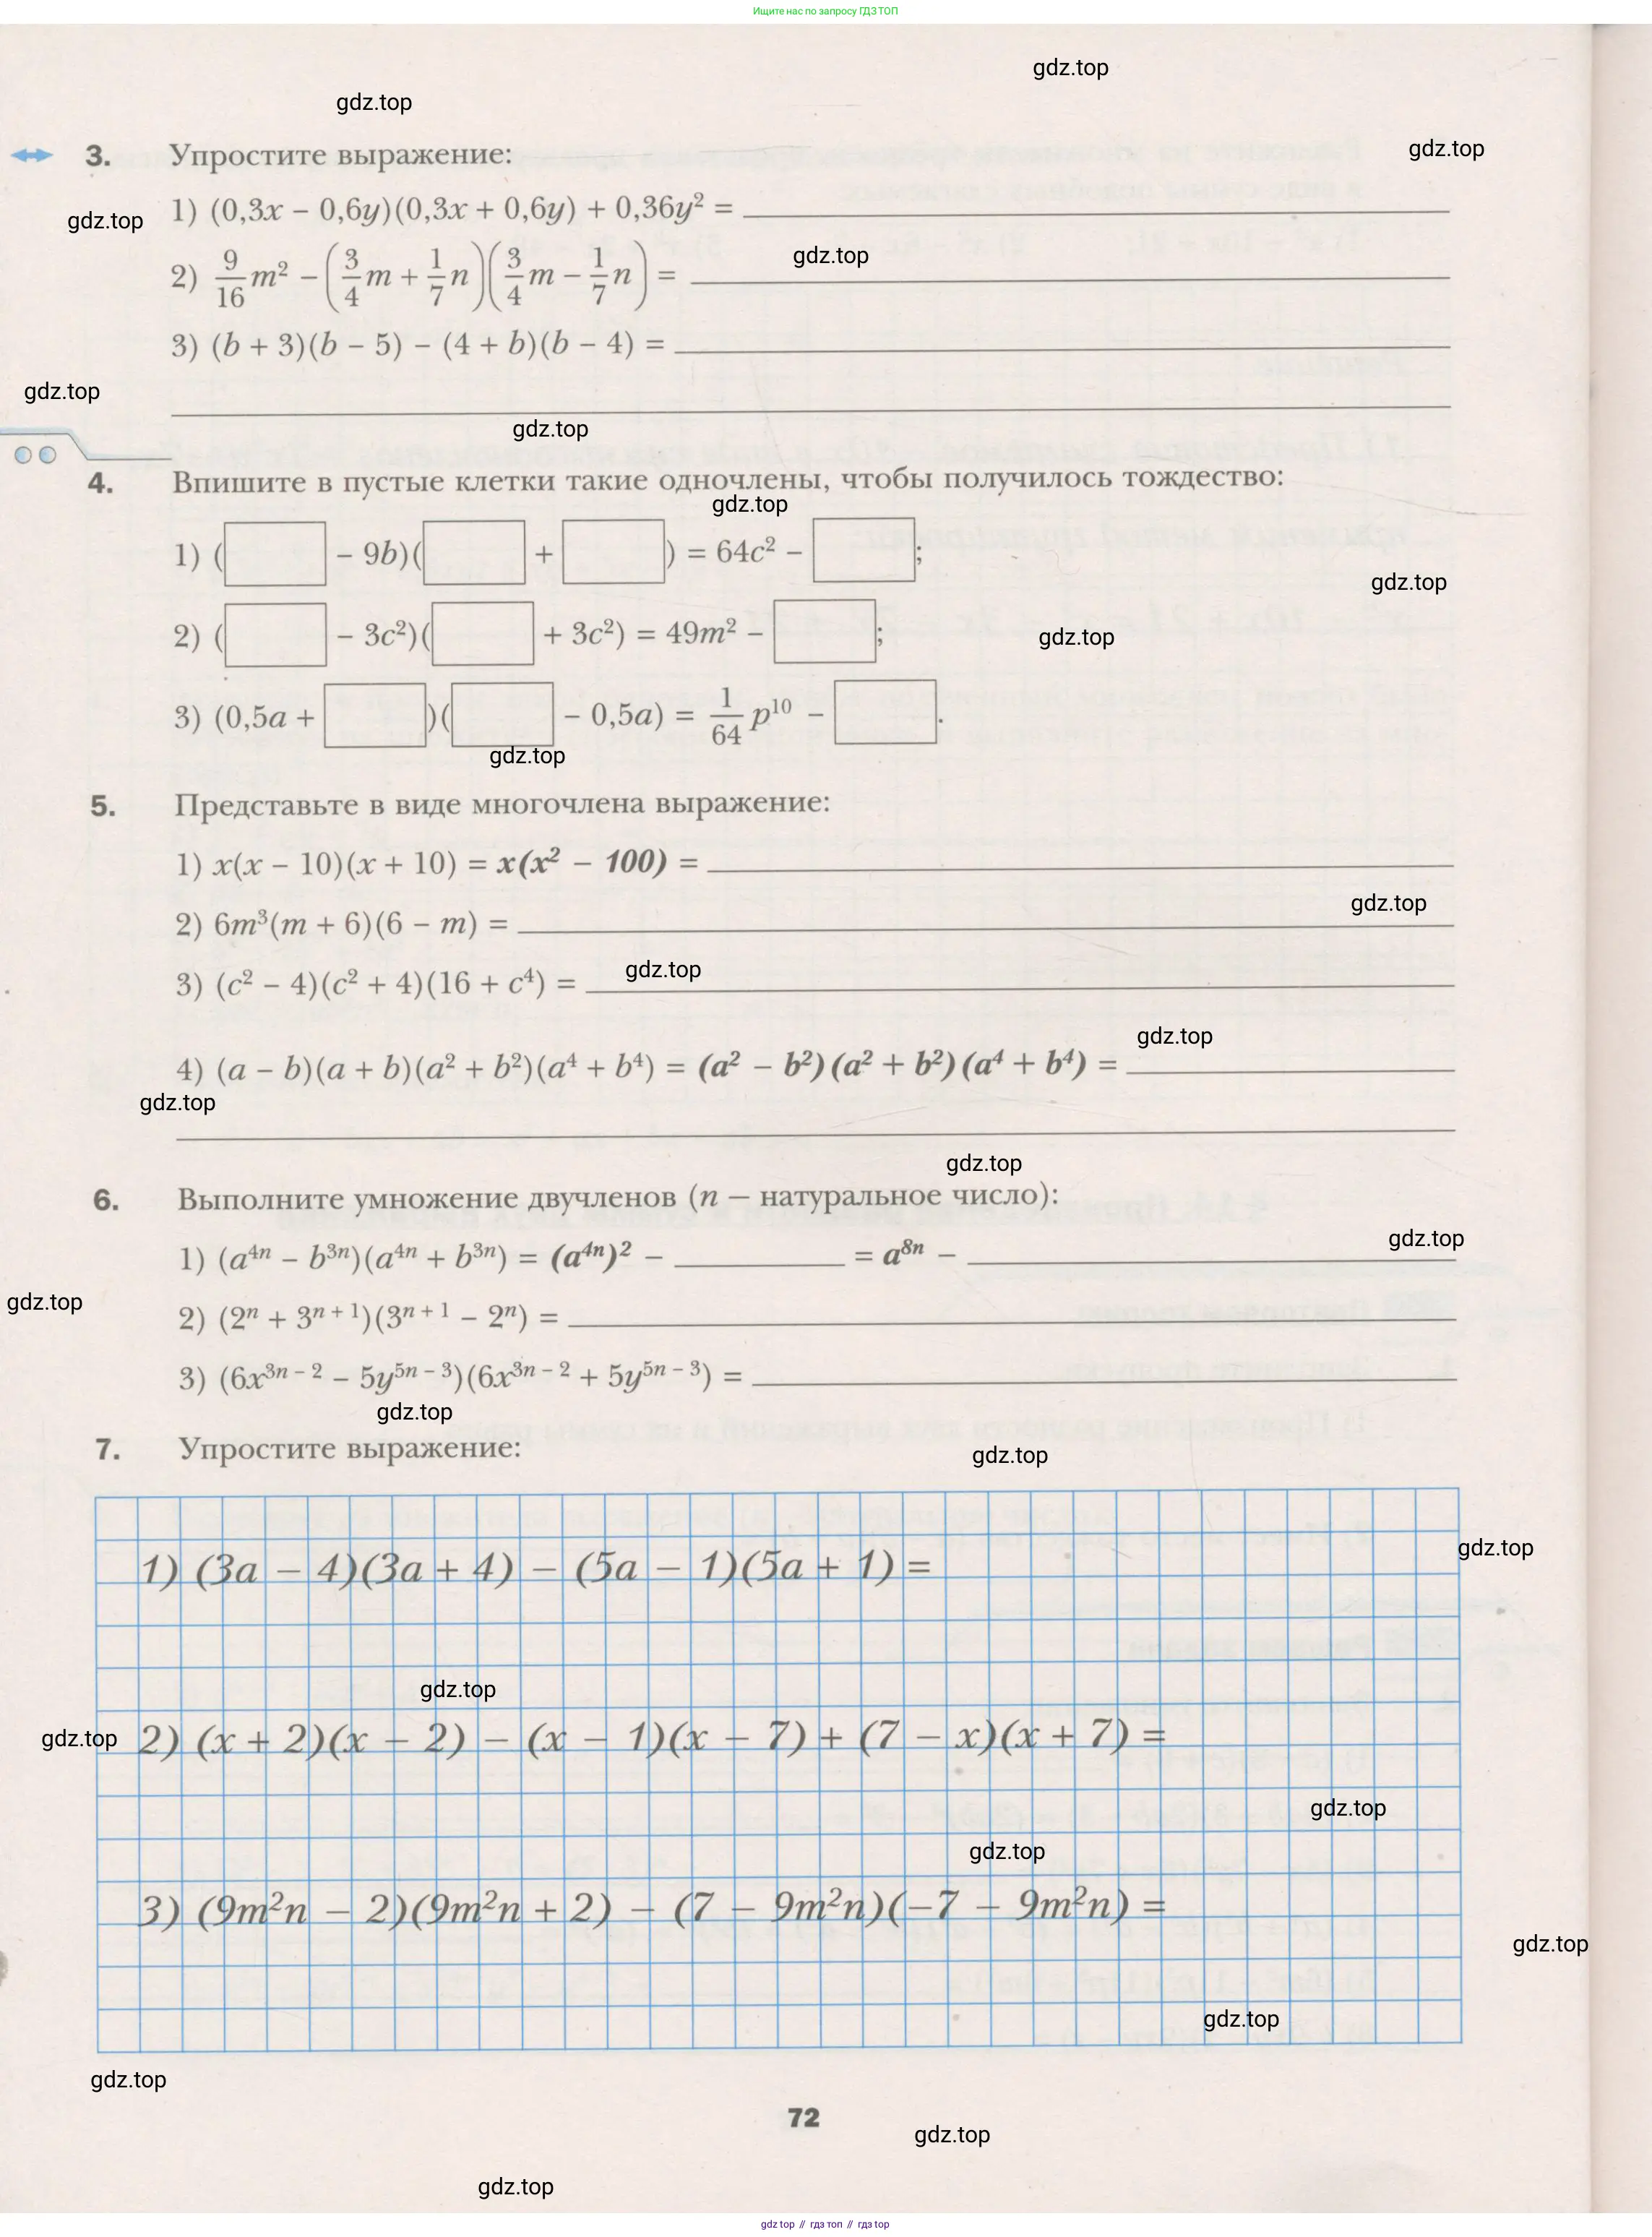 Ищите нас по запросу ГДЗ ТОП
gdz.top
gdz.top
3. Упростите выражение:
gdz.top
gdz.top
1) (0,3x – 0,6y)(0,3x + 0,6y) + 0,36y² =
gdz.top
2) 9/16 m² – (3/4 m + 1/7 n)(3/4 m – 1/7 n) =
3) (b + 3)(b – 5) – (4 + b)(b – 4) =
gdz.top
gdz.top
4. Впишите в пустые клетки такие одночлены, чтобы получилось тождество:
gdz.top
1) ( – 9b)( + ) = 64c² – ;
gdz.top
2) ( – 3c²)( + 3c²) = 49m² – ;
gdz.top
3) (0,5a + )( – 0,5a) = 1/64 p¹⁰ – .
gdz.top
5. Представьте в виде многочлена выражение:
1) x(x – 10)(x + 10) = x(x² – 100) =
gdz.top
2) 6m³(m + 6)(6 – m) =
gdz.top
3) (c² – 4)(c² + 4)(16 + c⁴) =
gdz.top
4) (a – b)(a + b)(a² + b²)(a⁴ + b⁴) = (a² – b²)(a² + b²)(a⁴ + b⁴) =
gdz.top
gdz.top
6. Выполните умножение двучленов (n – натуральное число):
gdz.top
1) (a⁴ⁿ – b³ⁿ)(a⁴ⁿ + b³ⁿ) = (a⁴ⁿ)² – = a⁸ⁿ –
gdz.top
2) (2ⁿ + 3ⁿ⁺¹)(3ⁿ⁺¹ – 2ⁿ) =
3) (6x³ⁿ⁻² – 5y⁵ⁿ⁻³)(6x³ⁿ⁻² + 5y⁵ⁿ⁻³) =
gdz.top
7. Упростите выражение:
gdz.top
gdz.top
1) (3a – 4)(3a + 4) – (5a – 1)(5a + 1) =
gdz.top
gdz.top
2) (x + 2)(x – 2) – (x – 1)(x – 7) + (7 – x)(x + 7) =
gdz.top
gdz.top
3) (9m²n – 2)(9m²n + 2) – (7 – 9m²n)(–7 – 9m²n) =
gdz.top
gdz.top
gdz.top
72
gdz.top
gdz.top
gdz top // гдз топ // гдз top